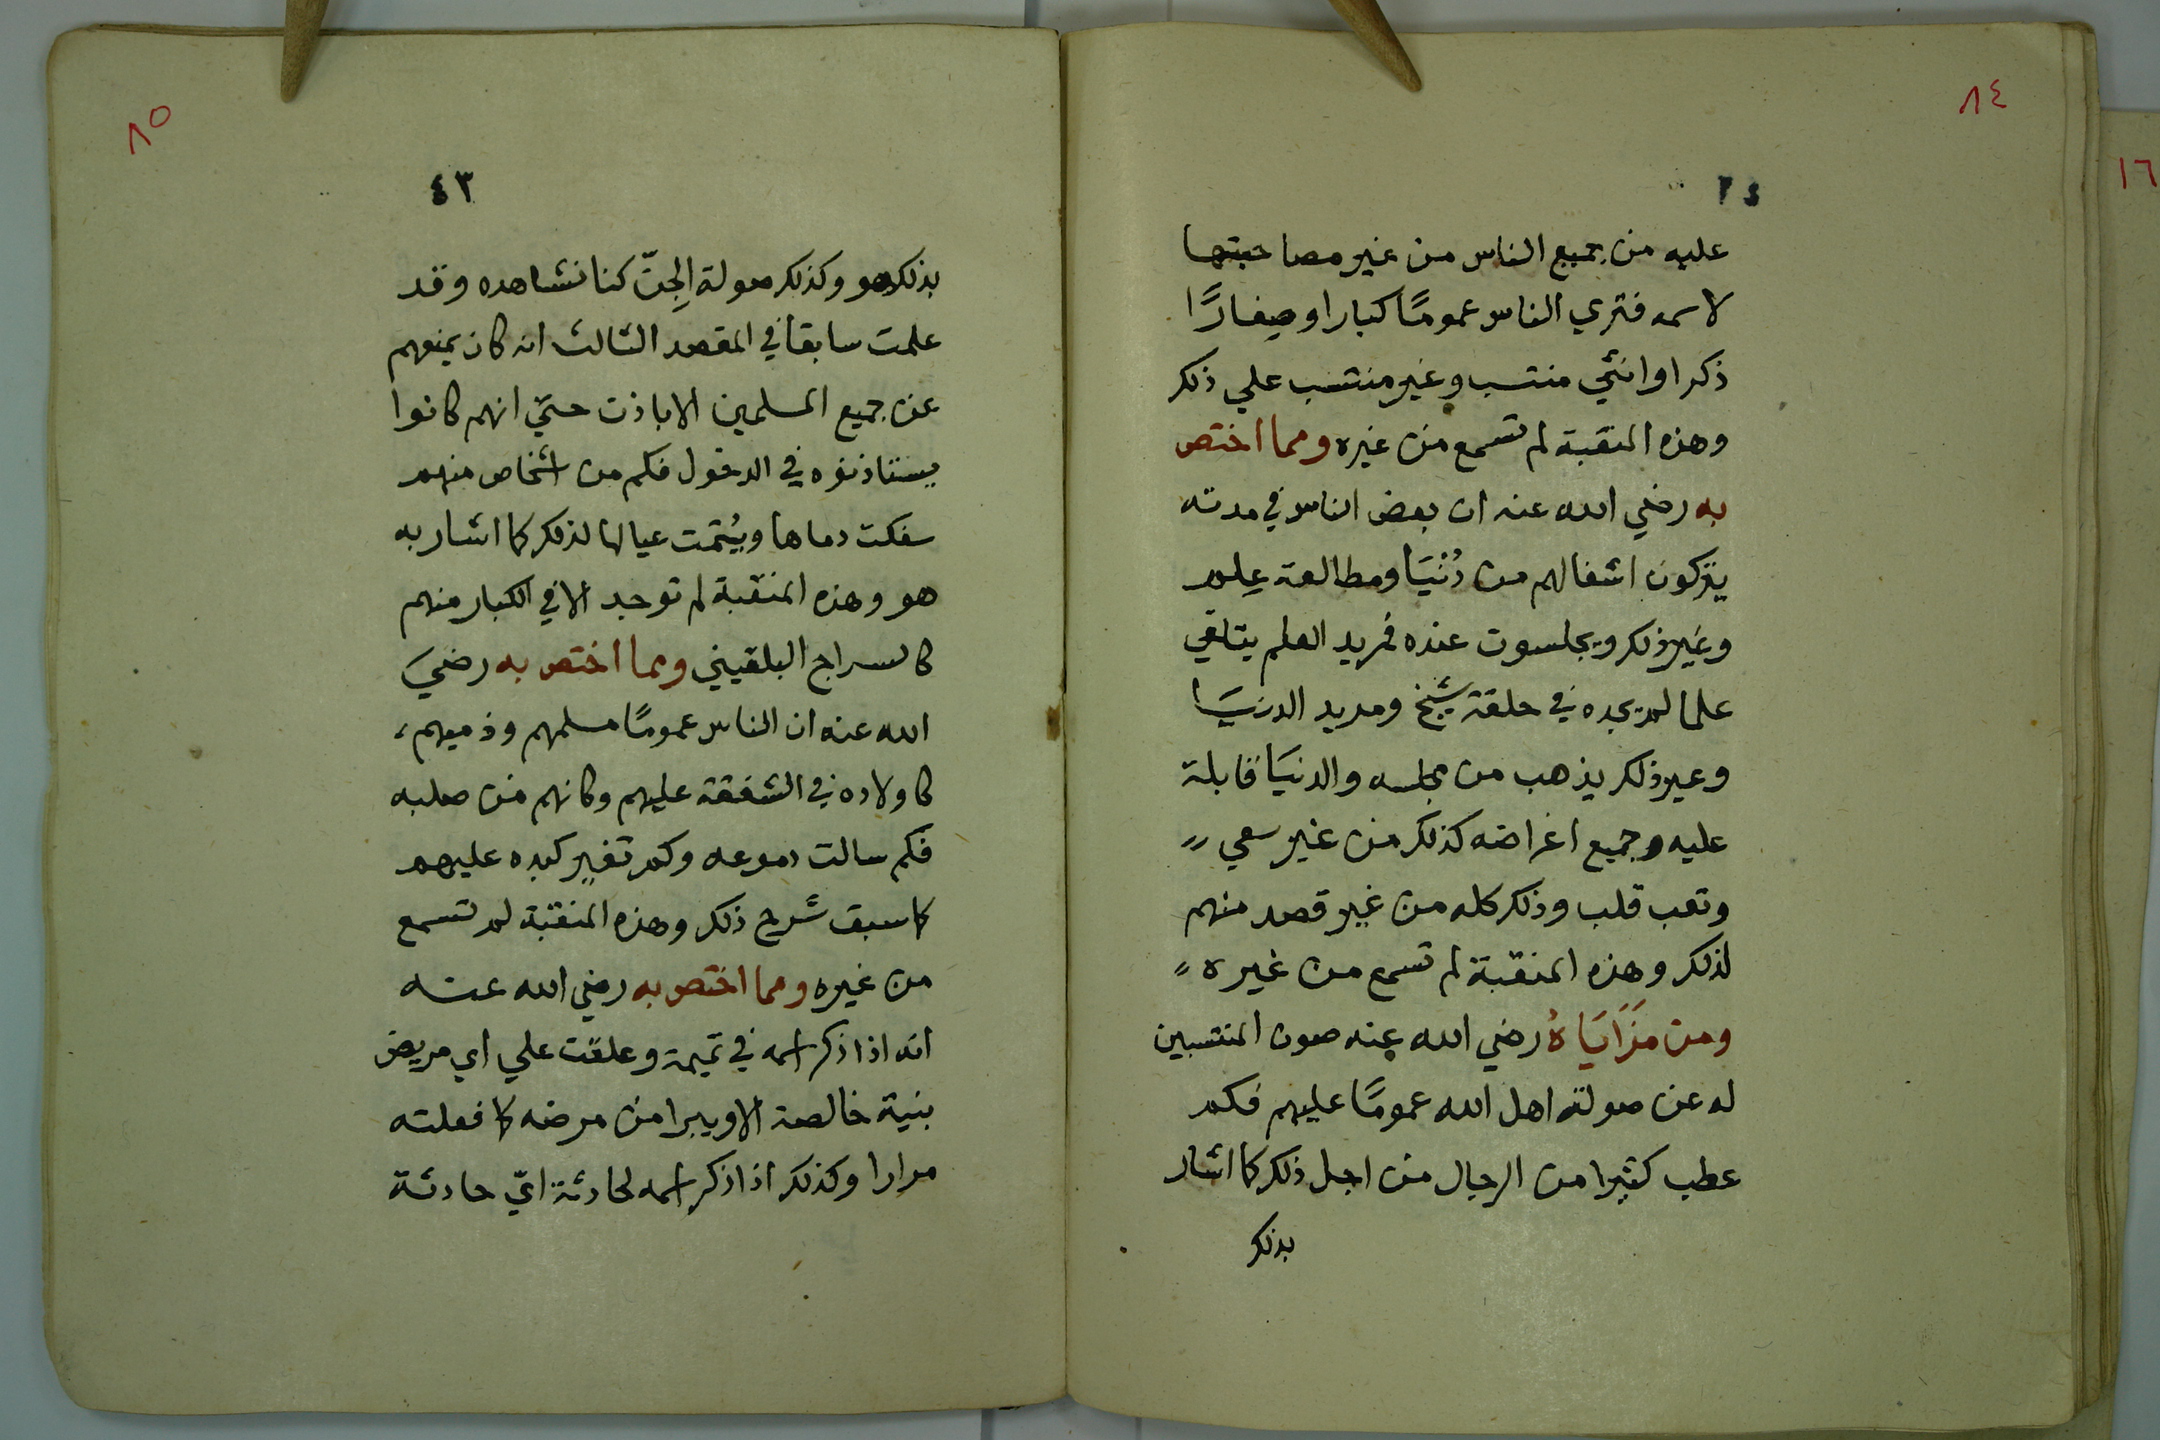 ٨٤
١٦
٤٢
عليه من جميع الناس من غير مصاحبتها
لاسمه فتري الناس عمومًا كبارا وصغارًا
ذكرا وانثي منتسب وغير منتسب علي ذلك
وهذه المنقبة لم تسمع من غيره ومما اختص
به رضي الله عنه ان بعض الناس في مدته
يتركون اشغالهم من دُنيَا ومطالعة عِلم
وغير ذلك ويجلسون عنده فمريد العلم يتلقي
علما لم يجده في حلقة شيخ ومريد الدنيَا
وغير ذلك يذهب من مجلسه والدنيَا قابلة
عليه وجميع اغراضه كذلك من غير سعي
وتعب قلب وذلك كله من غير قصد منهم
لذلك وهذه المنقبة لم تسمع من غيره
ومن مزَايَاهُ رضي الله عنه صون المنتسبين
له عن صولة اهل الله عمومًا عليهم فكم
عطب كثيرا من الرجال من اجل ذلك كما اشار
بذلك
٨٥
٤٣
بذلك هو وكذلك صولة الجِنّ كنا نشاهده وقد
علمت سابقا في المقصد الثالث انه كان يمنعهم
عن جميع المسلمين الا باذن حتي انهم كانوا
يستاذنوه في الدخول فكم من اشخاص منهم
سفكت دماها ويُتمت عيالها لذلك كما اشار به
هو وهذه المنقبة لم توجد الا في الكبار منهم
كالسراج البلقيني ومما اختص به رضيَ
الله عنه ان الناس عمومًا مسلمهم وذميهم
كاولاده في الشفقة عليهم وكانهم من صلبه
فكم سالت دموعه وكم تغير كبده عليهم
كما سبق شرح ذلك وهذه المنقبة لم تسمع
من غيره ومما اختص به رضي الله عنه
انه اذا ذكر اسمه في تميمة وعلقت علي اي مريض
بنية خالصة الا ويبرا من مرضه كما فعلته
مرارا وكذلك اذا ذكر اسمه لحادثة ايّ حادثة